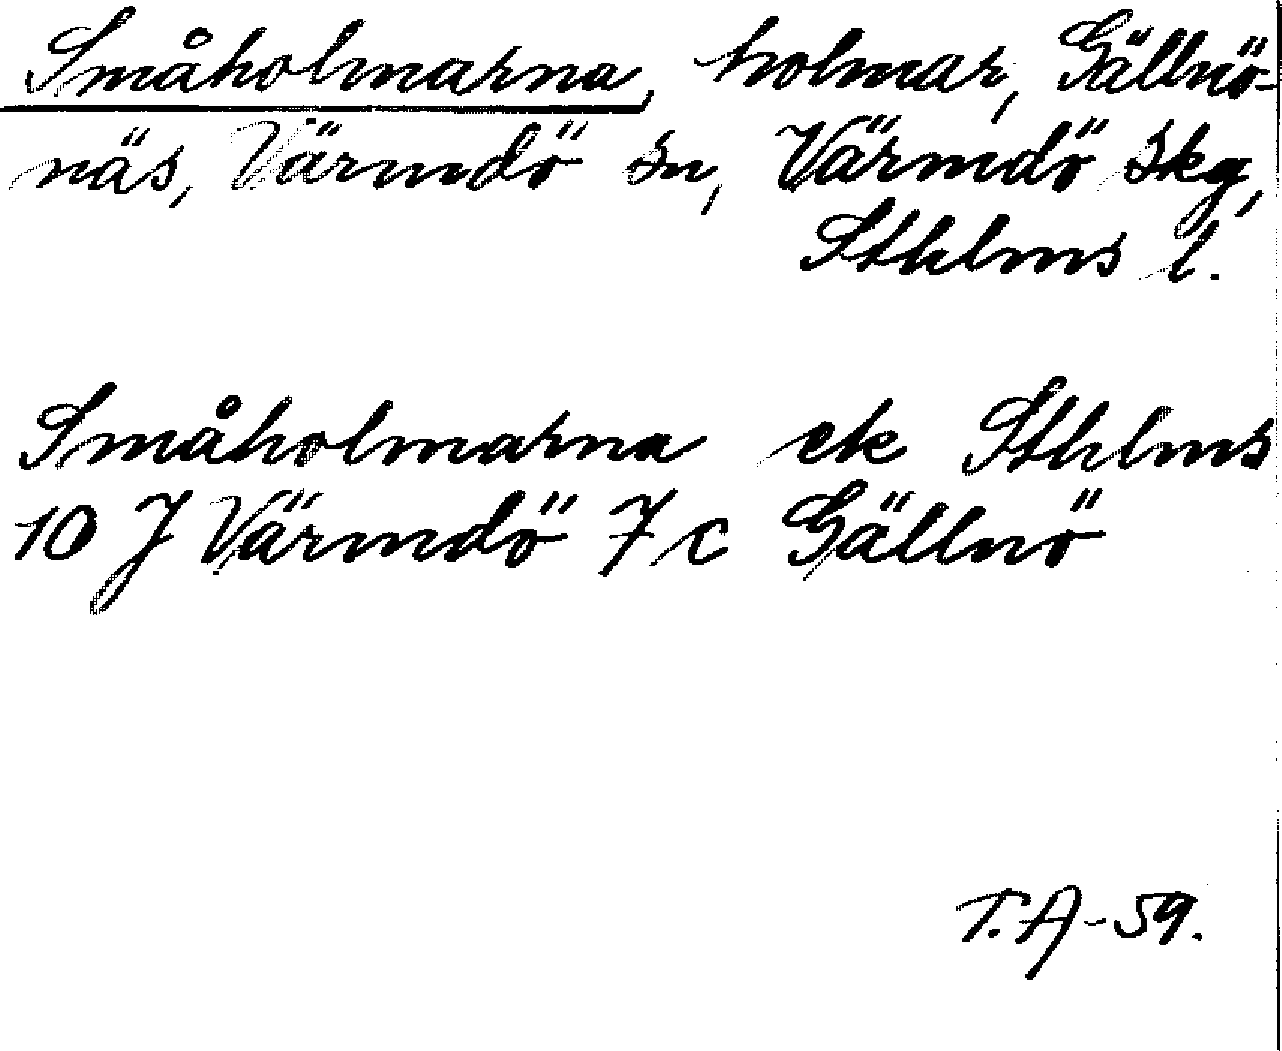 Småholmarna, holmar, Gällnö-
näs, Värmdö sn, Värmdö skg,
Sthlms l.
Småholmarna ek Sthlms
10 J Värmdö 7 c Gällnö
T.A-59.